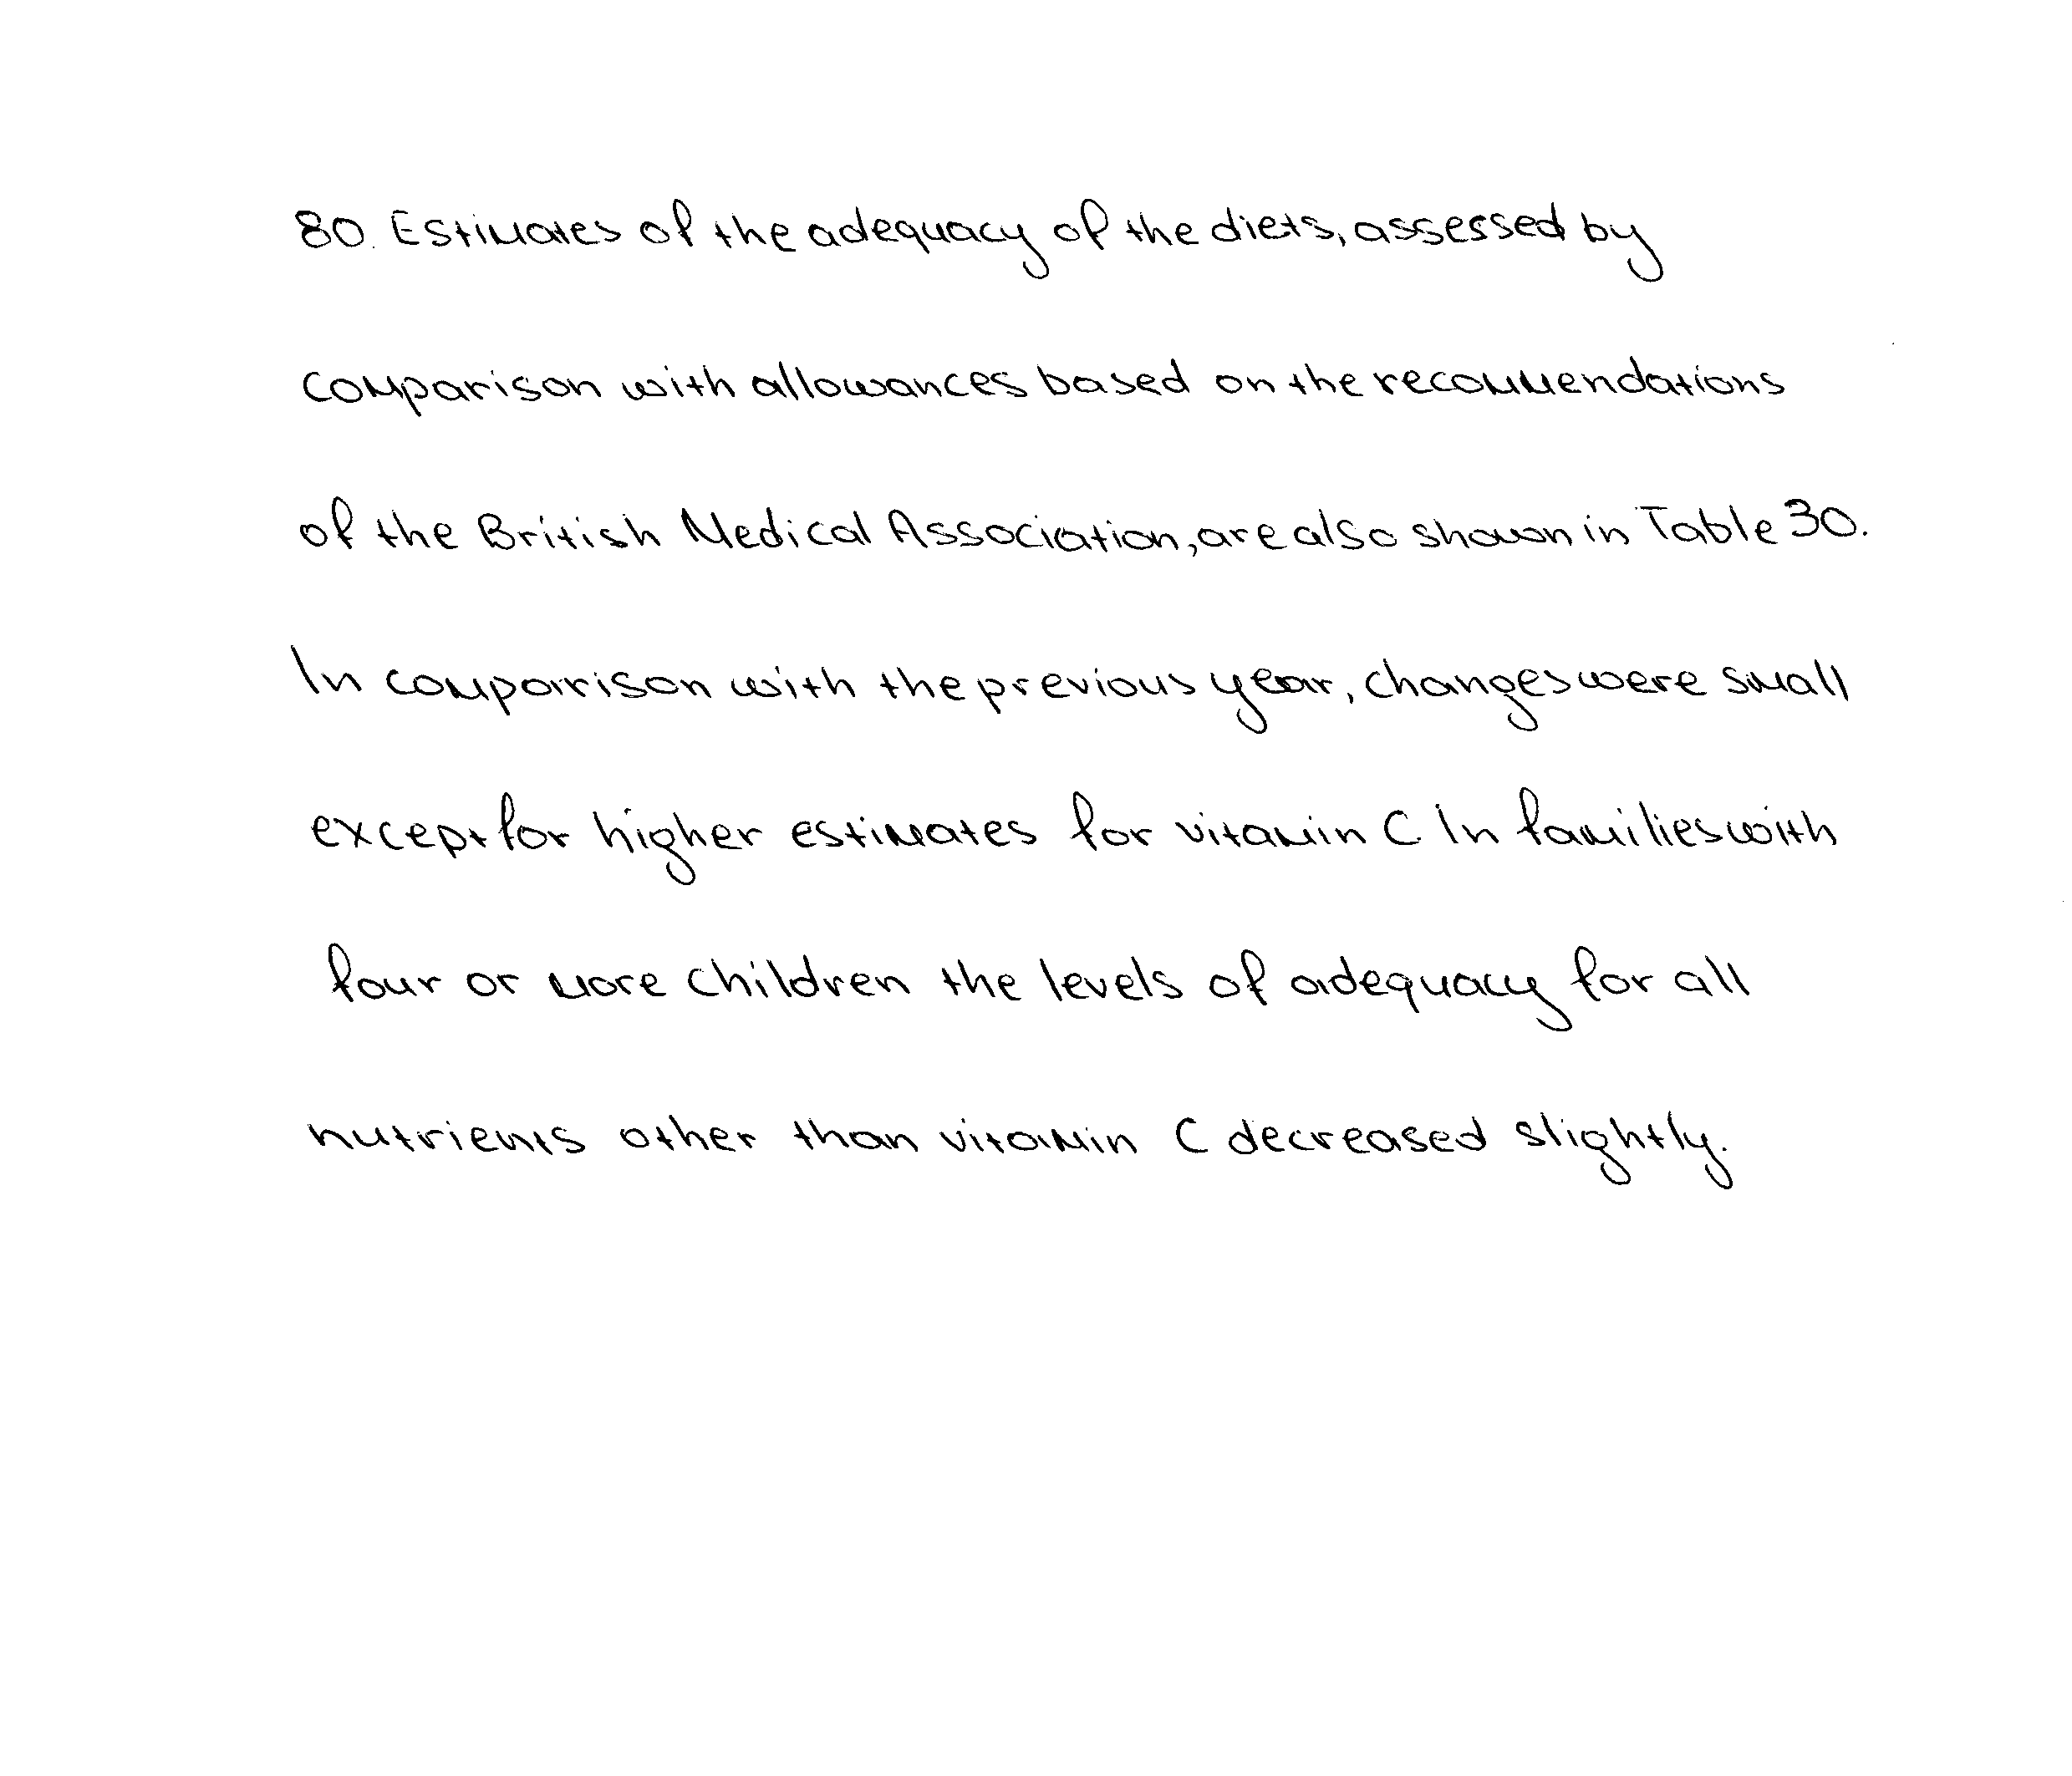 80. Estimates of the adequacy of the diets, assessed by
comparison with allowances based on the recommendations
of the British Medical Association, are also shown in Table 30.
In comparison with the previous year, changes were small
except for higher estimates for vitamin C. In families with
four or more children the levels of adequacy for all
nutrients other than vitamin C decreased slightly.